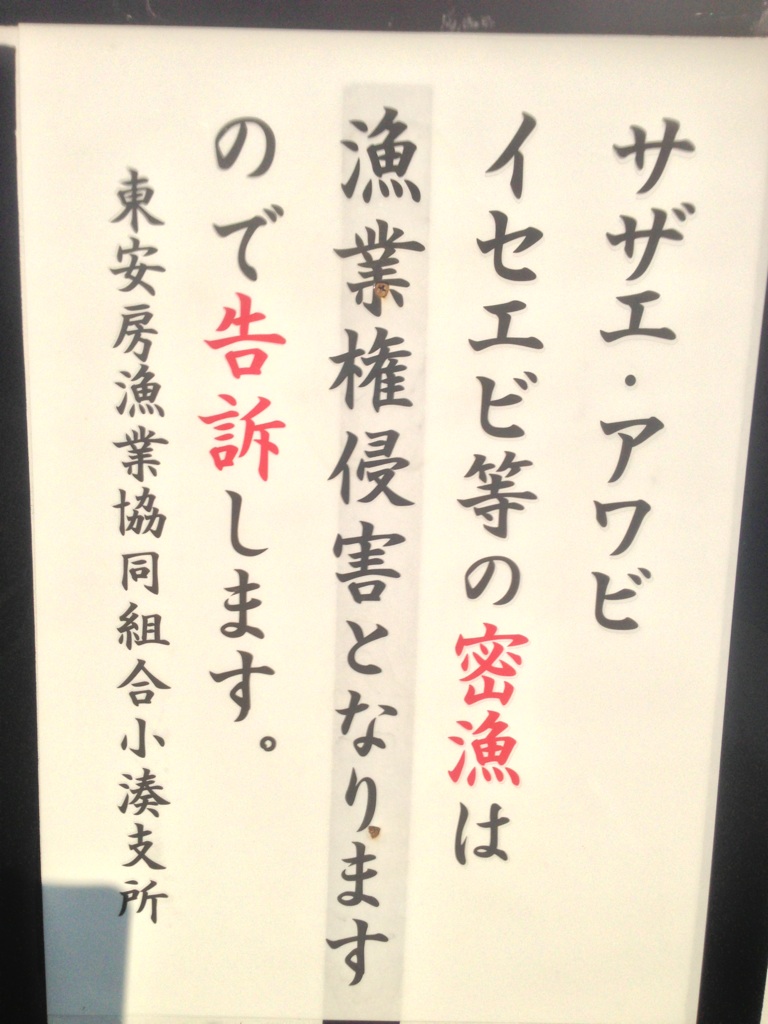 サザエ・アワビ
イセエビ等の密漁は
漁業権侵害となります
ので告訴します。
東安房漁業協同組合小湊支所